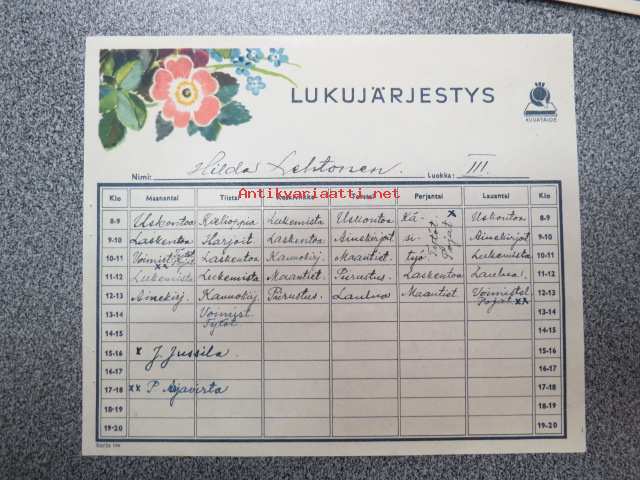 LUKUJÄRJESTYS
KUVATAIDE
Nimi: Hilda Lehtonen. Luokka: III.
Antikvariaatti.net
Klo Maanantai Tiistai Perjantai Lauantai Klo
8-9 Uskontoa Kielioppia Lukemista Uskontoa Kä- x Uskontoa 8-9
9-10 Laskentoa Harjoit. Laskentoa Ainekirjoit si- Tytöt Pojat Ainekirjoit 9-10
10-11 Voimist. Laskentoa Kaunokirj. Maantiet. työ Lukemista 10-11
11-12 Lukemista Lukemista Maantiet. Piirustus. Laskentoa Laulua. 11-12
12-13 Ainekirj. Kaunokirj. Piirustus. Laulua Maantiet. Voimistel. Pojat xx 12-13
13-14 Voimist. Tytöt 13-14
14-15 14-15
15-16 x J. Jussila. 15-16
16-17 16-17
17-18 xx P. Arjavirta 17-18
18-19 18-19
19-20 19-20